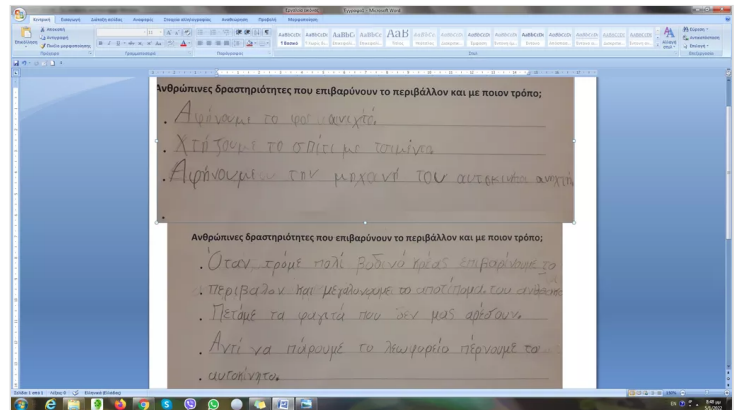 Εργαλεία εικόνας
Έγγραφο1 - Microsoft Word
Κεντρική Εισαγωγή Διάταξη σελίδας Αναφορές Στοιχεία αλληλογραφίας Αναθεώρηση Προβολή Μορφοποίηση
Επικόλληση
Αποκοπή
Αντιγραφή
Πινέλο μορφοποίησης
Πρόχειρο Γραμματοσειρά Παράγραφος Στυλ Επεξεργασία
Αλλαγή στυλ
Εύρεση
Αντικατάσταση
Επιλογή
Ανθρώπινες δραστηριότητες που επιβαρύνουν το περιβάλλον και με ποιον τρόπο;
. Αφήνουμε το φως ανιχτό.
. Χτήζουμε το σπίτι με τσιμέντο
. Αφήνουμε την μηχανή του αυτοκινήτου ανιχτή
Ανθρώπινες δραστηριότητες που επιβαρύνουν το περιβάλλον και με ποιον τρόπο;
. Όταν τρόμε πολύ βοδενό κρέας επιβαρύνουμε το
. περιβαλον και μεγαλώνουμε το αποτύπωμα του
. Πετάμε τα φαγιτά που δεν μας αρέσουν.
. Αντί να πάρουμε το λεωφορείο πέρνουμε το
. αυτοκίνητο.
Σελίδα: 1 από 1 Λέξεις: 0 Ελληνικά (Ελλάδας) 100%
EN 8:48 μμ
5/6/2022